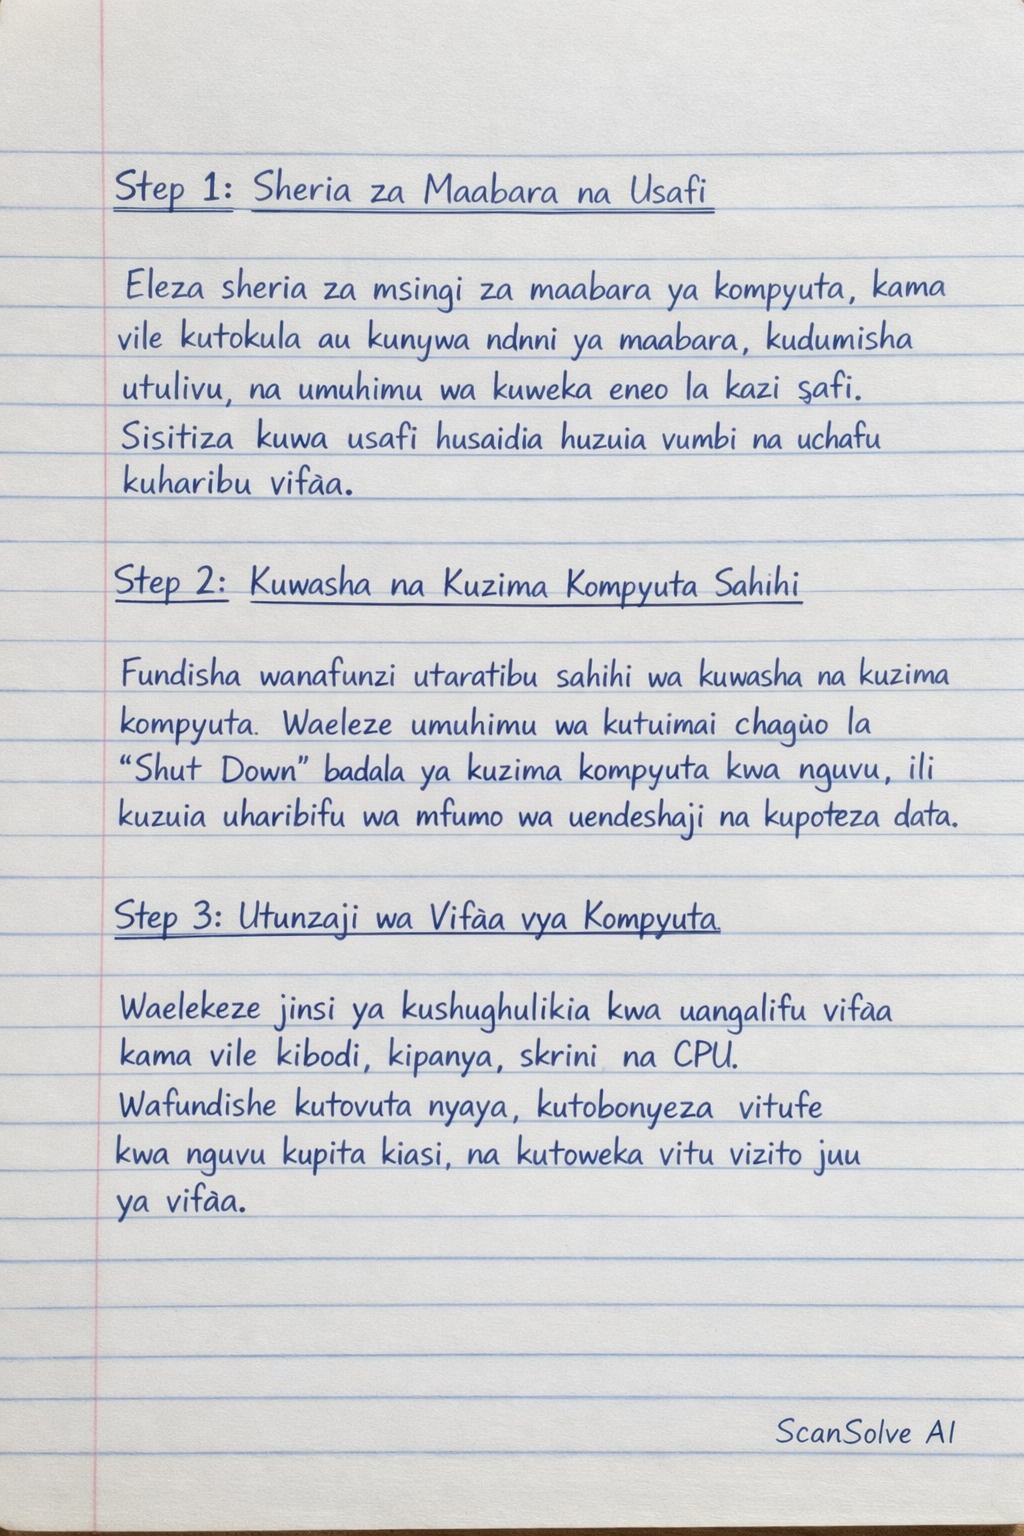 Step 1: Sheria za Maabara na Usafi
Eleza sheria za msingi za maabara ya kompyuta, kama
vile kutokula au kunywa ndnni ya maabara, kudumisha
utulivu, na umuhimu wa kuweka eneo la kazi şafi.
Sisitiza kuwa usafi husaidia huzuia vumbi na uchafu
kuharibu vifàa.
Step 2: Kuwasha na Kuzima Kompyuta Sahihi
Fundisha wanafunzi utaratibu sahihi wa kuwasha na kuzima
kompyuta. Waeleze umuhimu wa kutuimai chagùo la
“Shut Down” badala ya kuzima kompyuta kwa nguvu, ili
kuzuia uharibifu wa mfumo wa uendeshaji na kupoteza data.
Step 3: Utunzaji wa Vifàa vya Kompyuta
Waelekeze jinsi ya kushughulikia kwa uangalifu vifàa
kama vile kibodi, kipanya, skrini na CPU.
Wafundishe kutovuta nyaya, kutobonyeza vitufe
kwa nguvu kupita kiasi, na kutoweka vitu vizito juu
ya vifàa.
ScanSolve AI